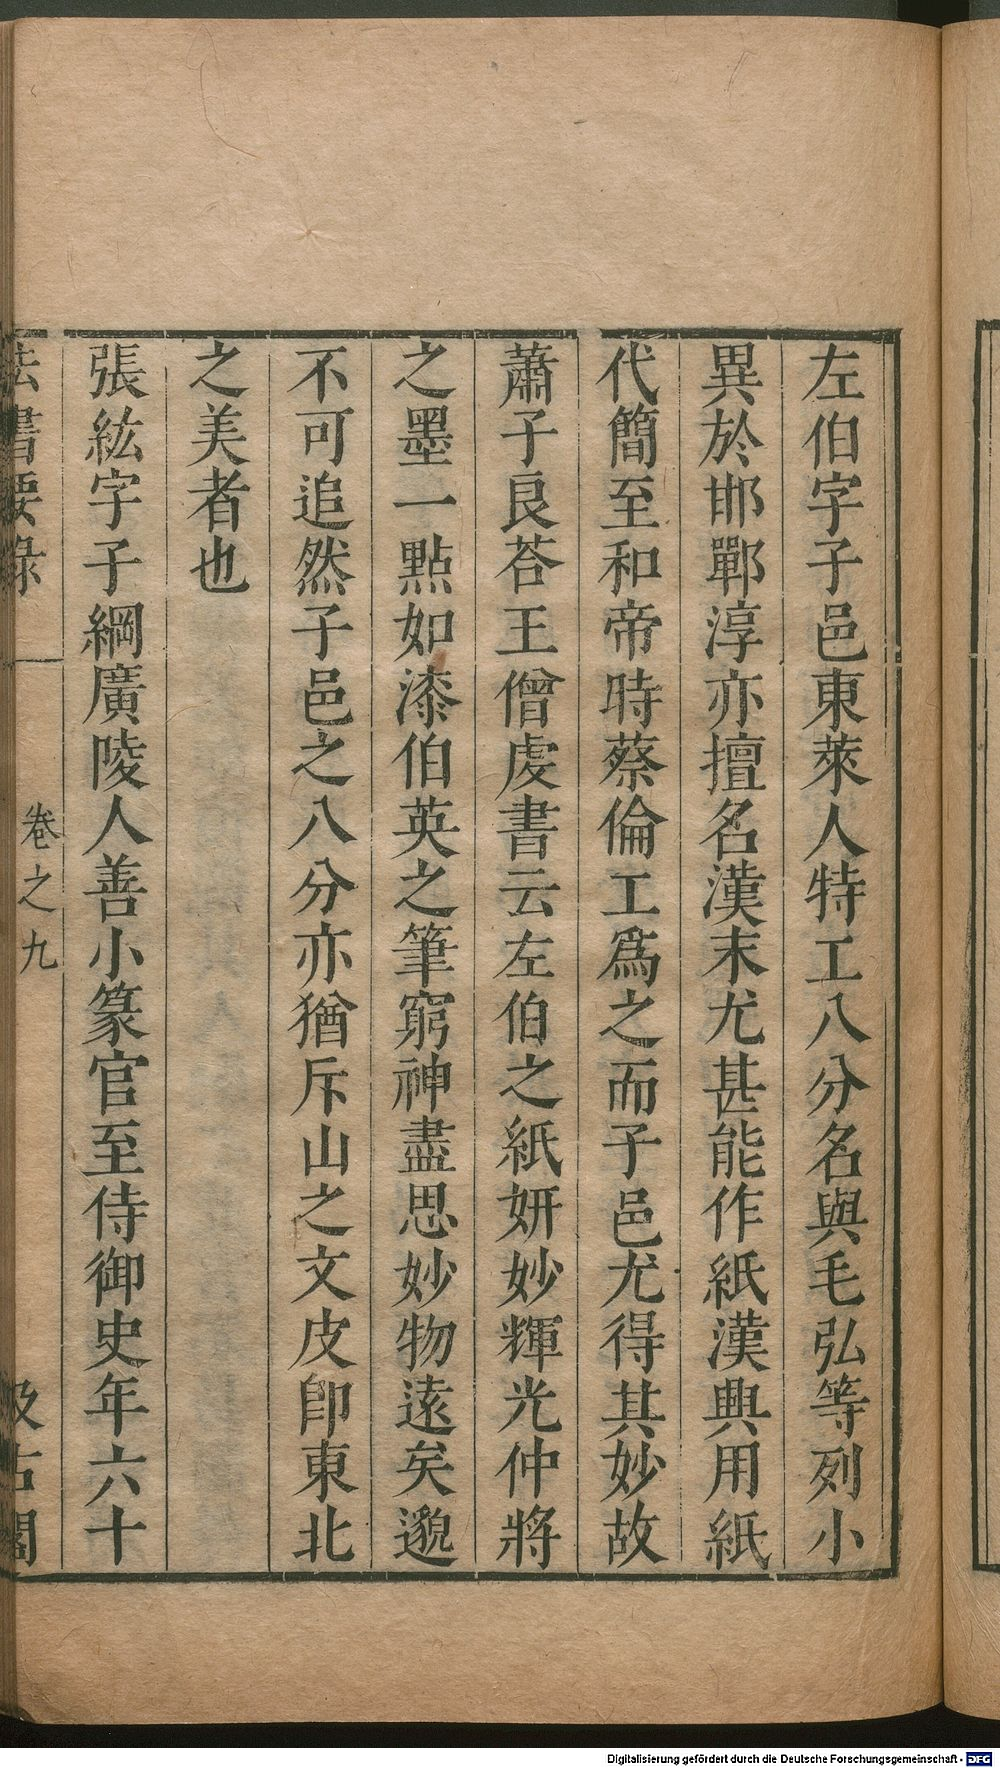 左伯字子邑東萊人特工八分名與毛弘等列小
異於邯鄲淳亦擅名漢末尤甚能作紙漢興用紙
代簡至和帝時蔡倫工爲之而子邑尤得其妙故
蕭子良荅王僧虔書云左伯之紙妍妙輝光仲將
之墨一點如漆伯英之筆窮神盡思妙物遠矣邈
不可追然子邑之八分亦猶斥山之文皮卽東北
之美者也
張紘字子綱廣陵人善小篆官至侍御史年六十
法書要錄
卷之九
汲古閣
Digitalisierung gefördert durch die Deutsche Forschungsgemeinschaft - DFG